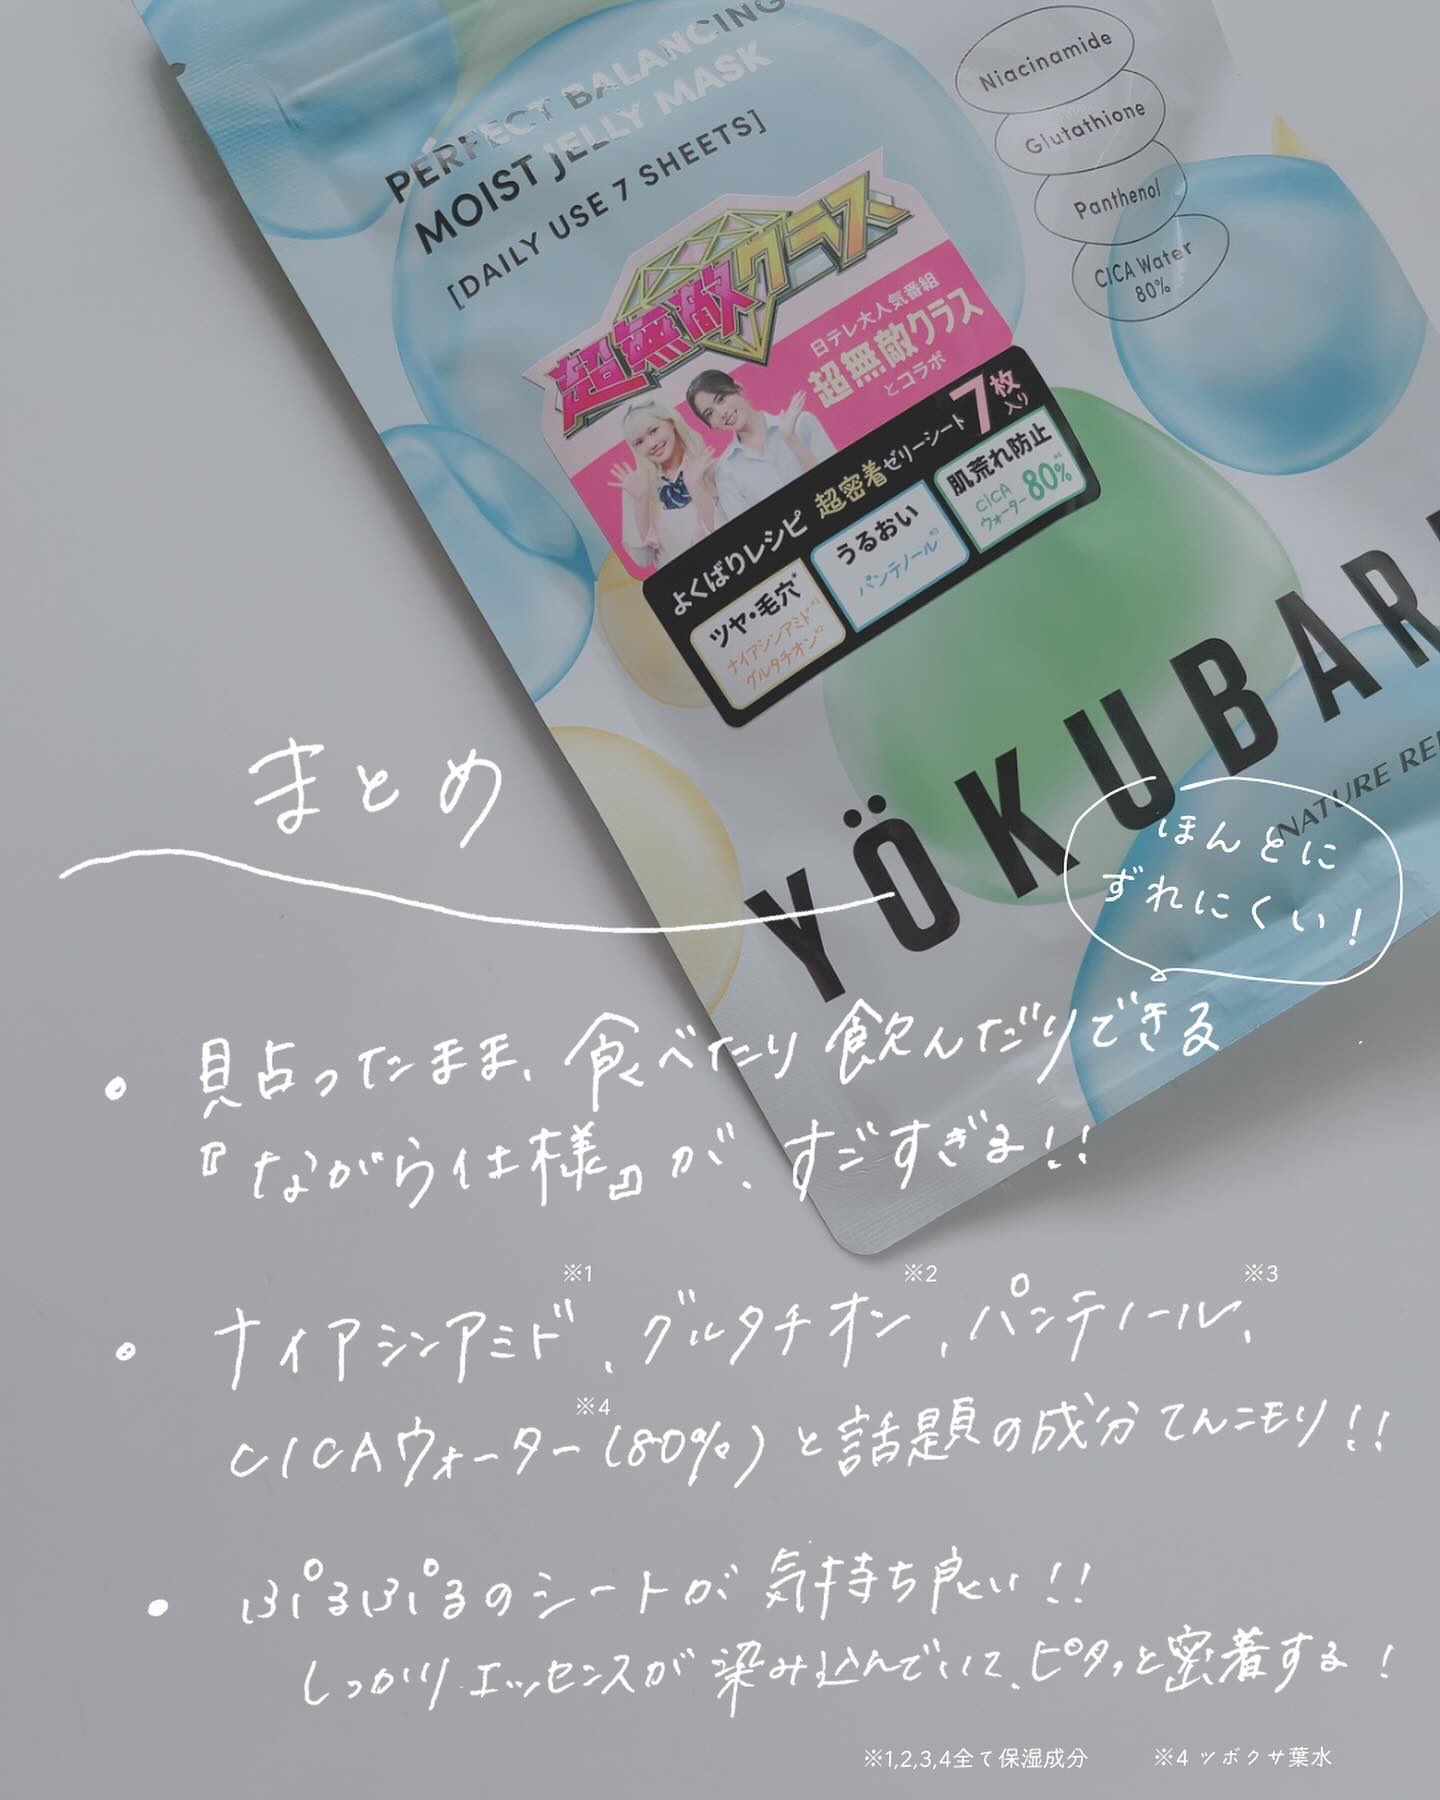 PERFECT BALANCING
MOIST JELLY MASK
[DAILY USE 7 SHEETS]
Niacinamide
Glutathione
Panthenol
CICA Water
80%
超無敵クラス
日テレ大人気番組
超無敵クラス
とコラボ
よくばりレシピ 超密着ゼリーシート 7枚入り
ツヤ・毛穴*
ナイアシンアミド*1
グルタチオン*2
うるおい
パンテノール*3
肌荒れ防止
CICA
ウォーター80%*4
YÖKUBAR
NATURE RE
まとめ
ほんとに
ずれにくい!
• 貼ったまま、食べたり飲んだりできる
『ながら仕様』が、すごすぎる!!
• ナイアシンアミド※1、グルタチオン※2、パンテノール※3、
CICAウォーター※4(80%)と話題の成分てんこモリ!!
• ぷるぷるのシートが気持ち良い!!
しっかりエッセンスが染み込んでいて、ピタッと密着する!
※1,2,3,4全て保湿成分 ※4 ツボクサ葉水